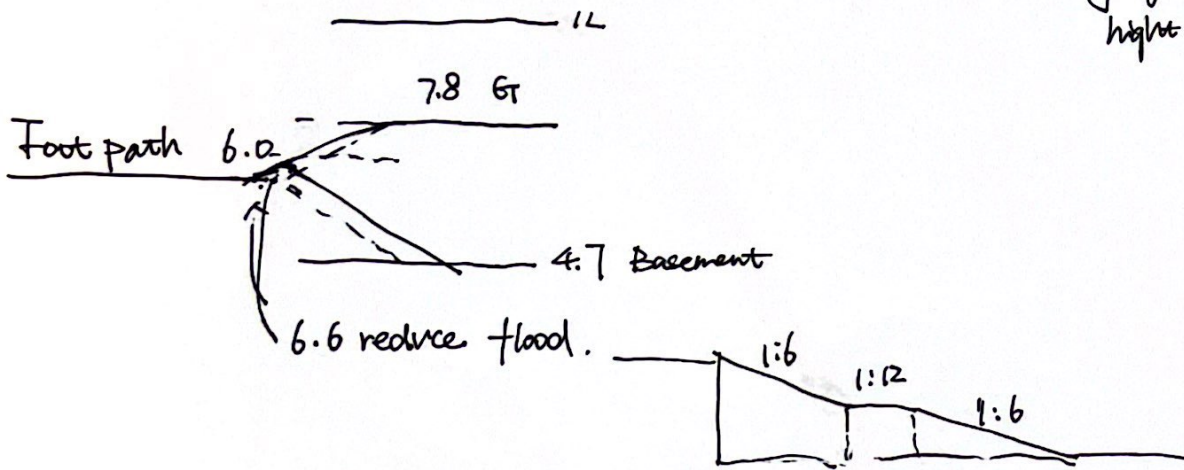 1L
hight
7.8 G
Foot path 6.0
4.7 Basement
6.6 reduce flood.
1:6
1:12
1:6